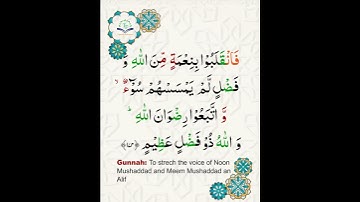 فَانْقَلَبُوْا بِنِعْمَةٍ مِّنَ اللّٰهِ وَ
فَضْلٍ لَّمْ يَمْسَسْهُمْ سُوْٓءٌ ۙ
وَّ اتَّبَعُوْا رِضْوَانَ اللّٰهِ ؕ
وَ اللّٰهُ ذُوْ فَضْلٍ عَظِيْمٍ
Gunnah: To strech the voice of Noon
Mushaddad and Meem Mushaddad an
Alif